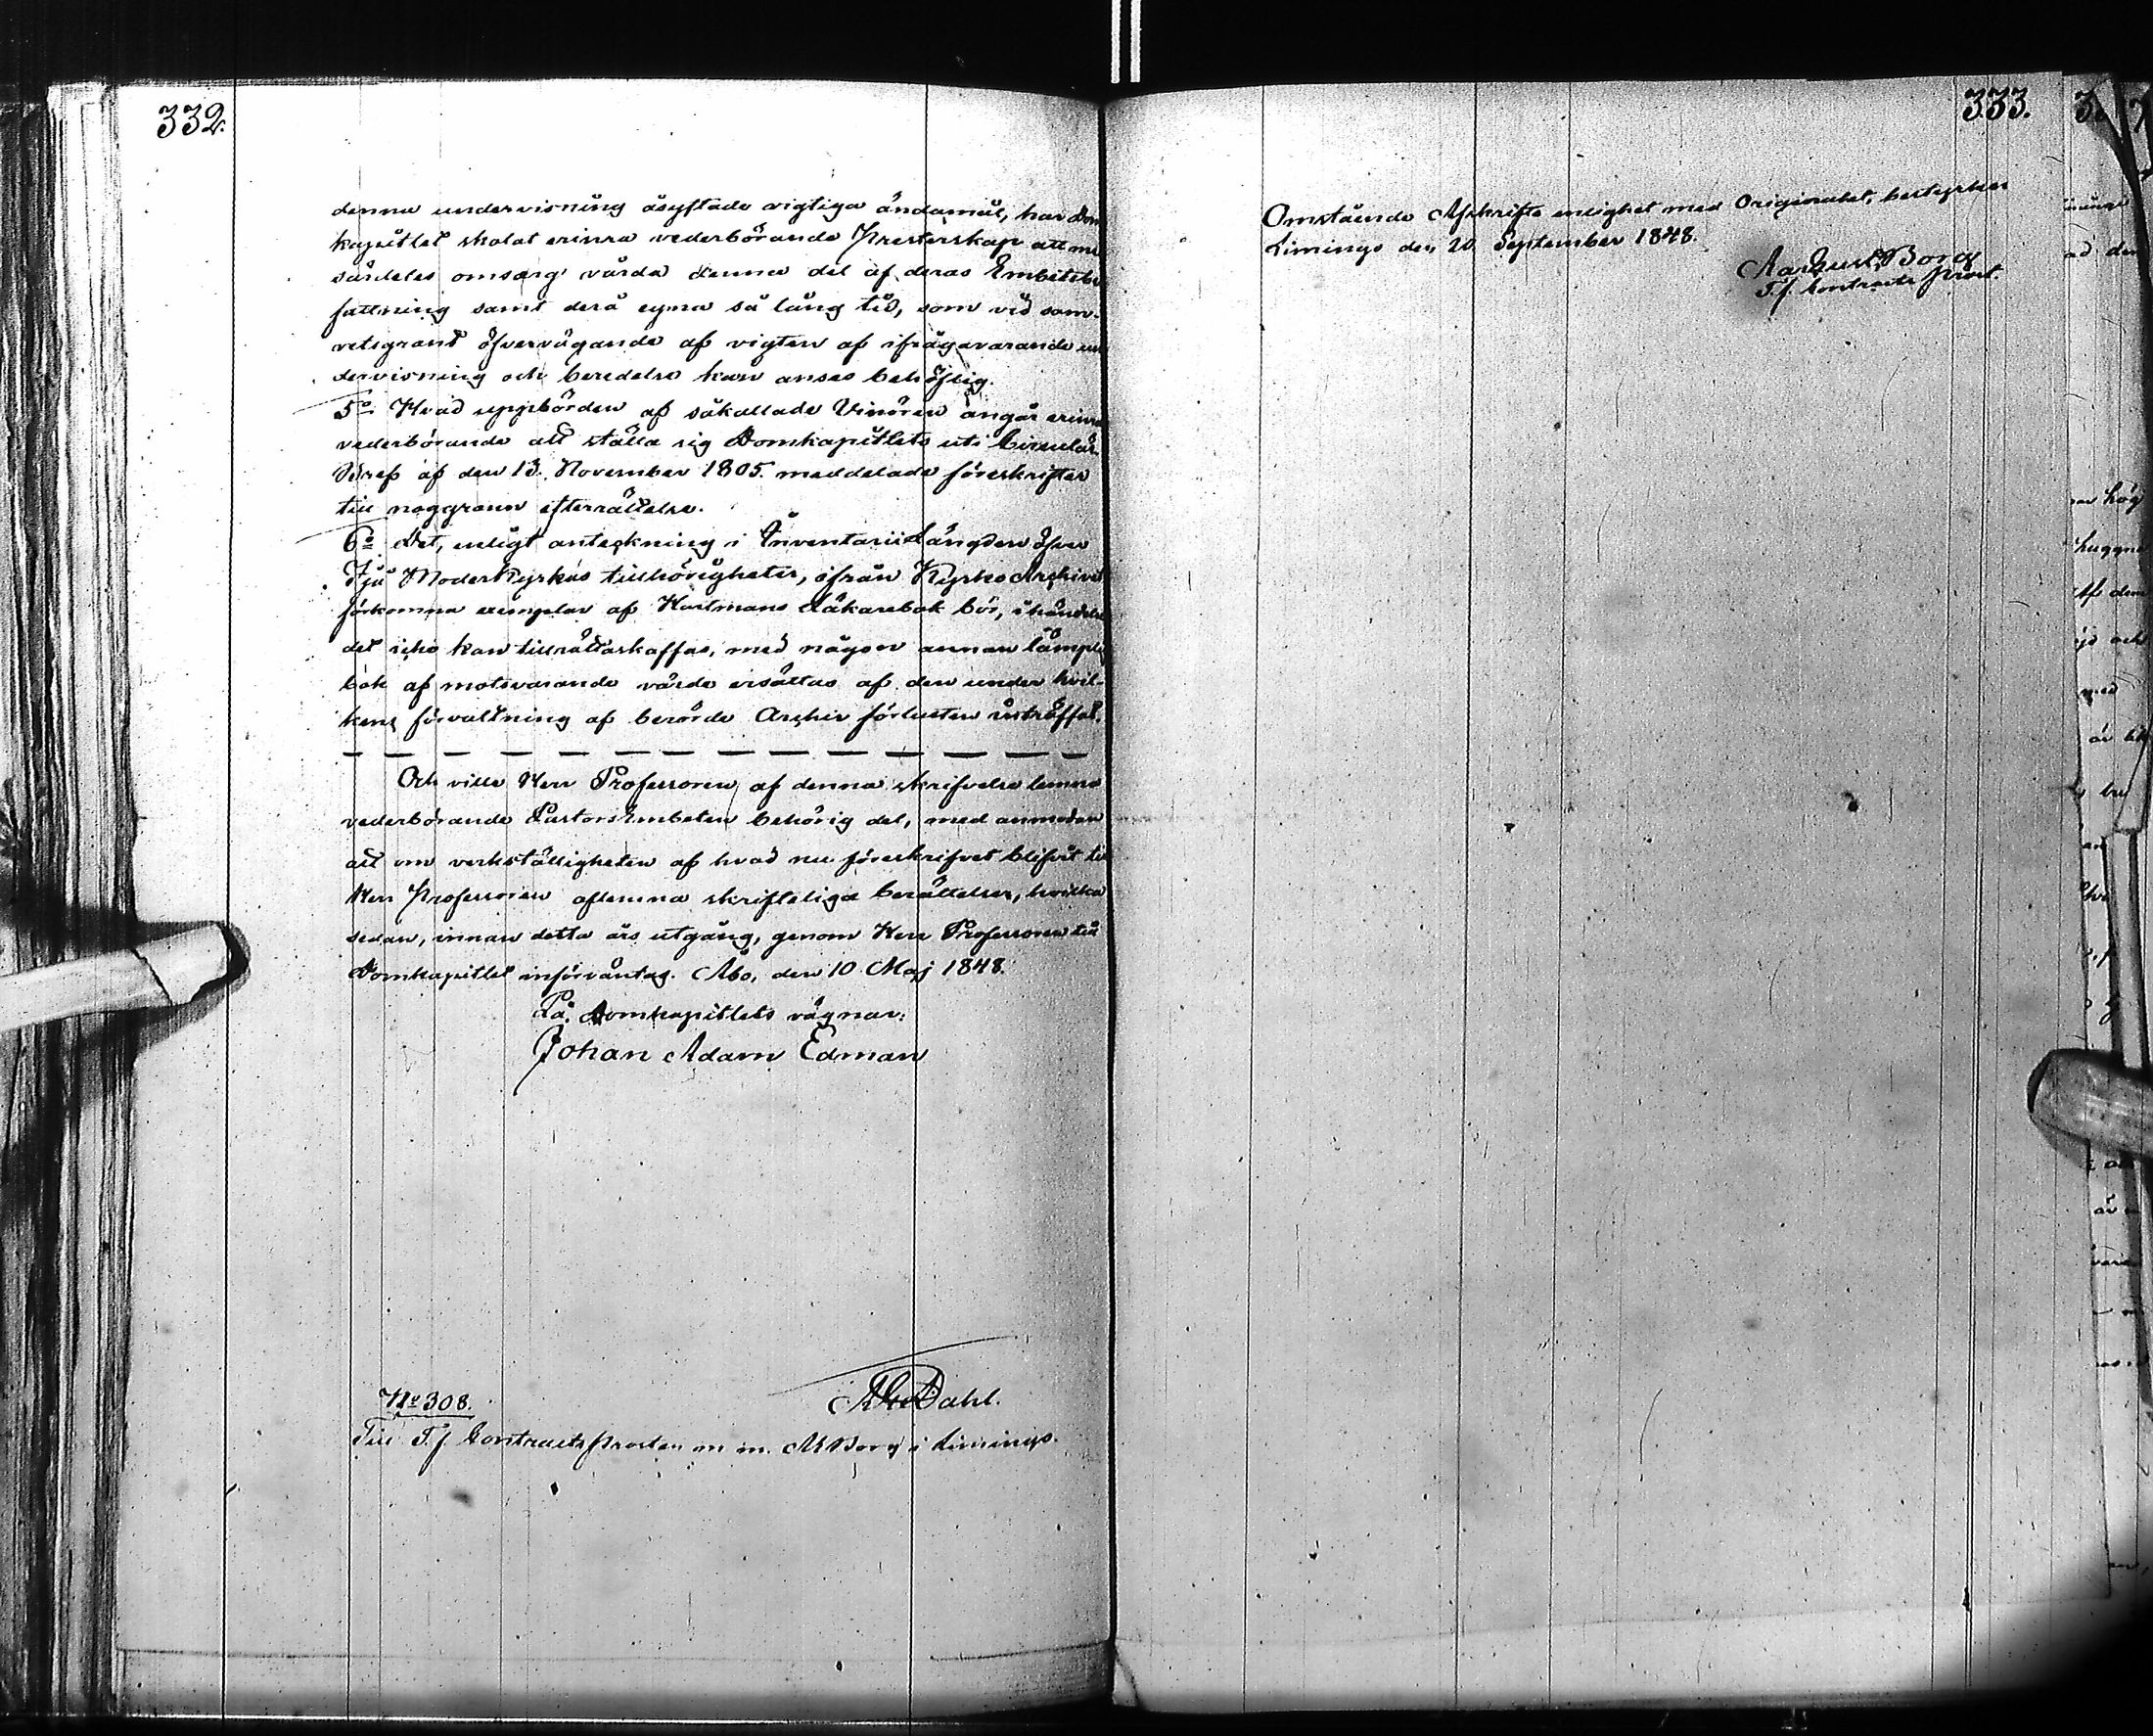 332.
denna undervisning åsyftade vigtiga ändamål, har Dom
kapitlet skolat erinra vederbörande Presterskap att me
särdeles omsorg vårda denna del af deras Embetsbe
fattning samt derå egna så lång tid, som vid sam-
vetsgrant öfvervägande af vigten af ifrågavarande un
dervisning och beredelse kan anses behöflig.
5o Hvad uppbörden af såkallade Vinören angår erinra
vederbörande att ställa sig Domkapitlets uti Circulär
Bref af den 13. November 1805. meddelade föreskrifter
till noggrann efterrättelse.
6o Det, enligt anteckning i Inventarii Längden öfver
Ijå Moderkyrkas tillhörigheter, ifrån Kyrko Archivet
förkomna exemplar af Hartmans Läkarebok bör, ihändelse
det icke kan tillrättaskaffas, med någon annan lämplig
bok af motsvarande värde ersättas af den under hvil-
kens förvaltning af berörde Archiv förlusten inträffat.
Och ville Herr Professoren af denna skrifvelse lemna
vederbörande Pastors Embeten behörig del, med anmodan
att om verkställigheten af hvad nu föreskrifvet blifvit till
Herr Professoren aflemna skriftliga berättelser, hvilka
sedan, innan detta års utgång, genom Herr Professoren till
Domkapitlet införväntas. Åbo, den 10 Maj 1848.
På Domkapitlets vägnar:
Johan Adam Edman
Dahl.
No 308.
Till T.f. Contracts Prosten m m. A Borg i Limingo.
333.
Omstående Afskrifts enlighet med Originalet, bestyrker
Limingo den 20 September 1848.
August Borg
T.f. Contracts Prost.